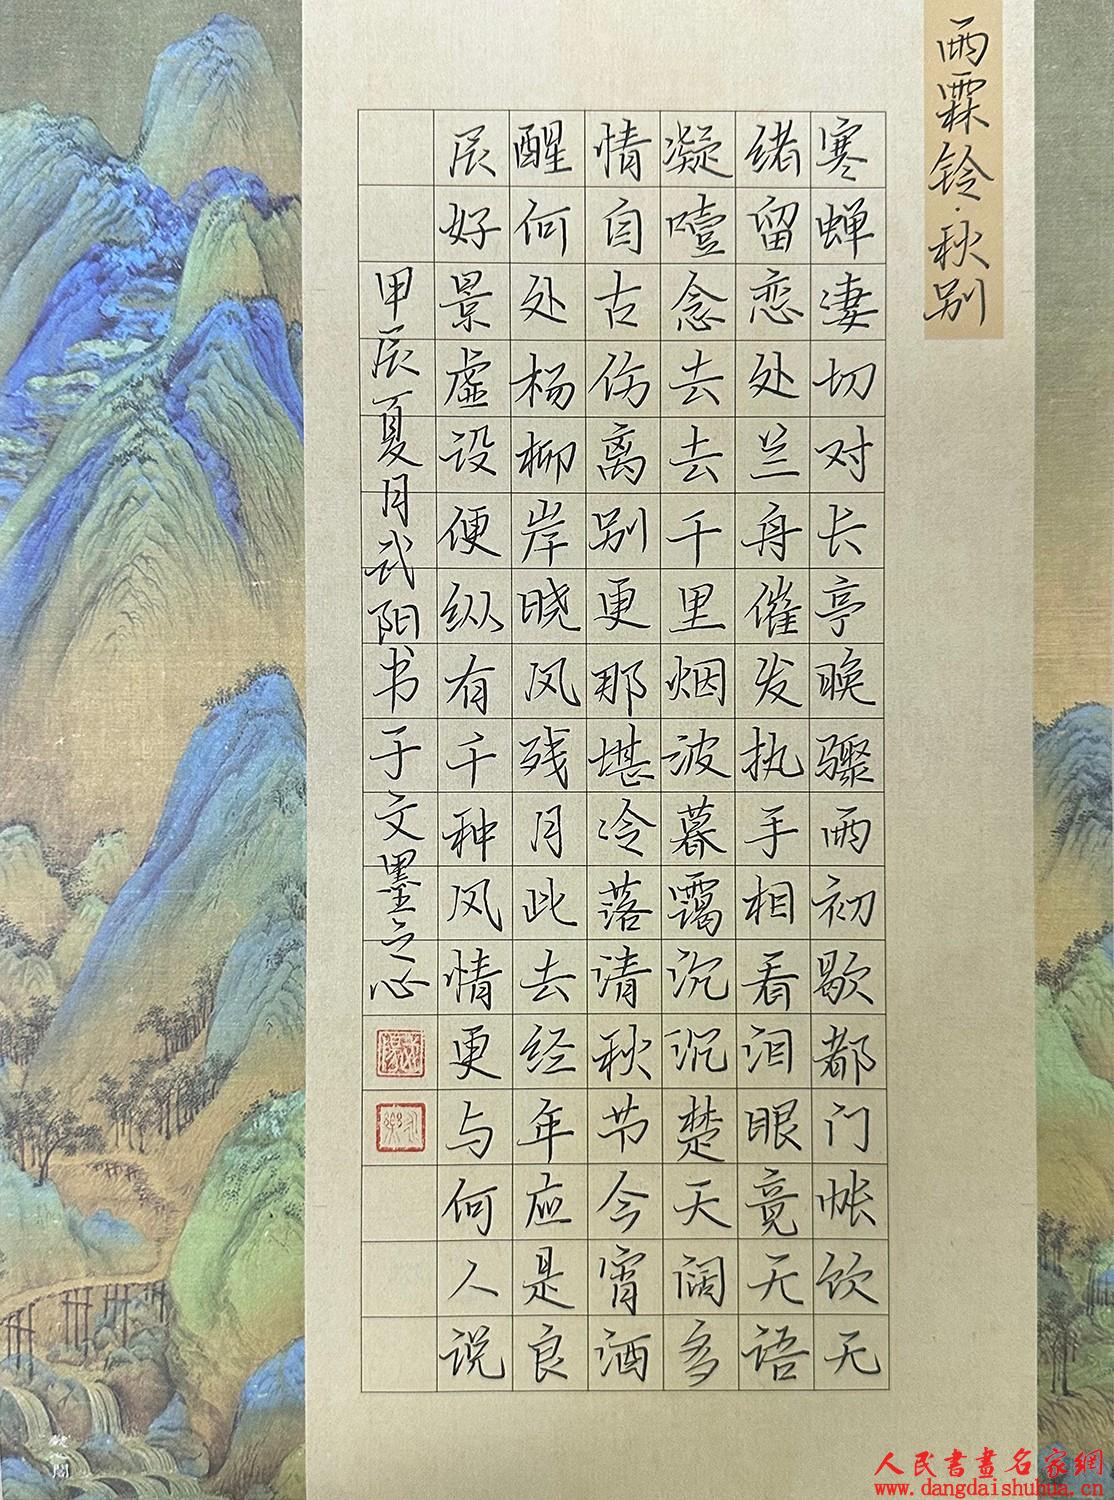 雨霖铃·秋别
寒蝉凄切对长亭晚骤雨初歇都门帐饮无
绪留恋处兰舟催发执手相看泪眼竟无语
凝噎念去去千里烟波暮霭沉沉楚天阔多
情自古伤离别更那堪冷落清秋节今宵酒
醒何处杨柳岸晓风残月此去经年应是良
辰好景虚设便纵有千种风情更与何人说
甲辰夏月武阳书于文墨之心
人民書畫名家網
www.dangdaishuhua.cn